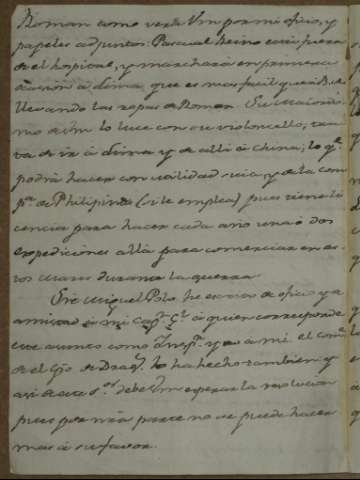 Roman como verá Vm por mi oficio, y
papeles adjuntos. Pascual Reino está fuera
de el hospital, y marchará en primera
ocasion á Lima, que es mas facil que á B.
llevando las ropas de Roman. Su
mo de Vm lo luce con su violoncello,
de ir á Lima y de alli á China; lo q.e
podrá hacer con utilidad suia y de la com
p.a de Philipinas (si le emplea) pues tiene li
cencia para hacer cada año una ó dos
expediciones allá para comerciar en es
tos mares durante la guerra.
En Miguel Polo he escrito de oficio y
amistad á mi Cap.n G.l á quien corresponde
este asunto como y no á mi. el
de el de lo ha hecho tambien y
asi de ese s.or debe Vm esperar la resolucion
pues por mia parte no se puede hacer
mas á su favor.